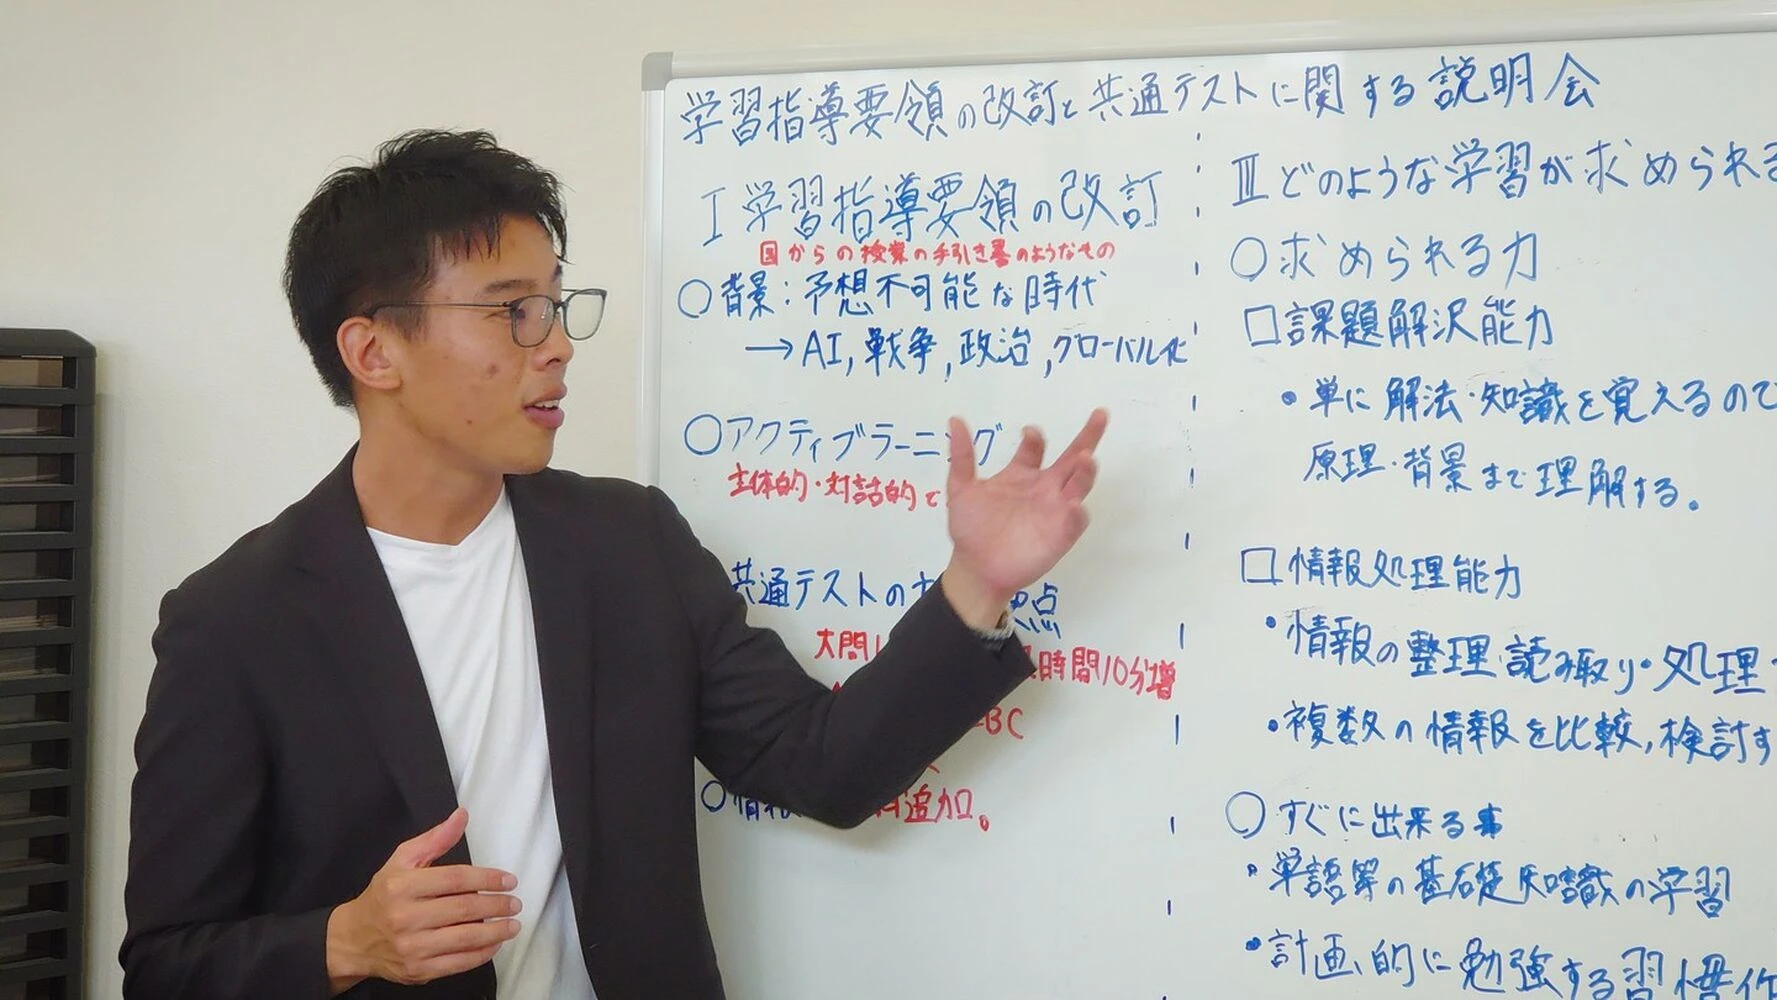 学習指導要領の改訂と共通テストに関する説明会
I 学習指導要領の改訂
国からの授業の手引き書のようなもの
○背景:予想不可能な時代
→AI,戦争,政治,グローバル化
○アクティブラーニング
主体的・対話的で
共通テストの 点
大問 時間10分増
BC
○情 追加。
Ⅲどのような学習が求められる
○求められる力
□課題解決能力
・単に解法・知識を覚えるので
原理・背景まで理解する。
□情報処理能力
・情報の整理・読み取り・処理
・複数の情報を比較,検討す
○すぐに出来る事
・単語等の基礎知識の学習
・計画的に勉強する習慣作